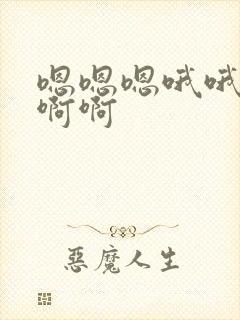 嗯嗯嗯哦哦
啊啊
惡魔人生